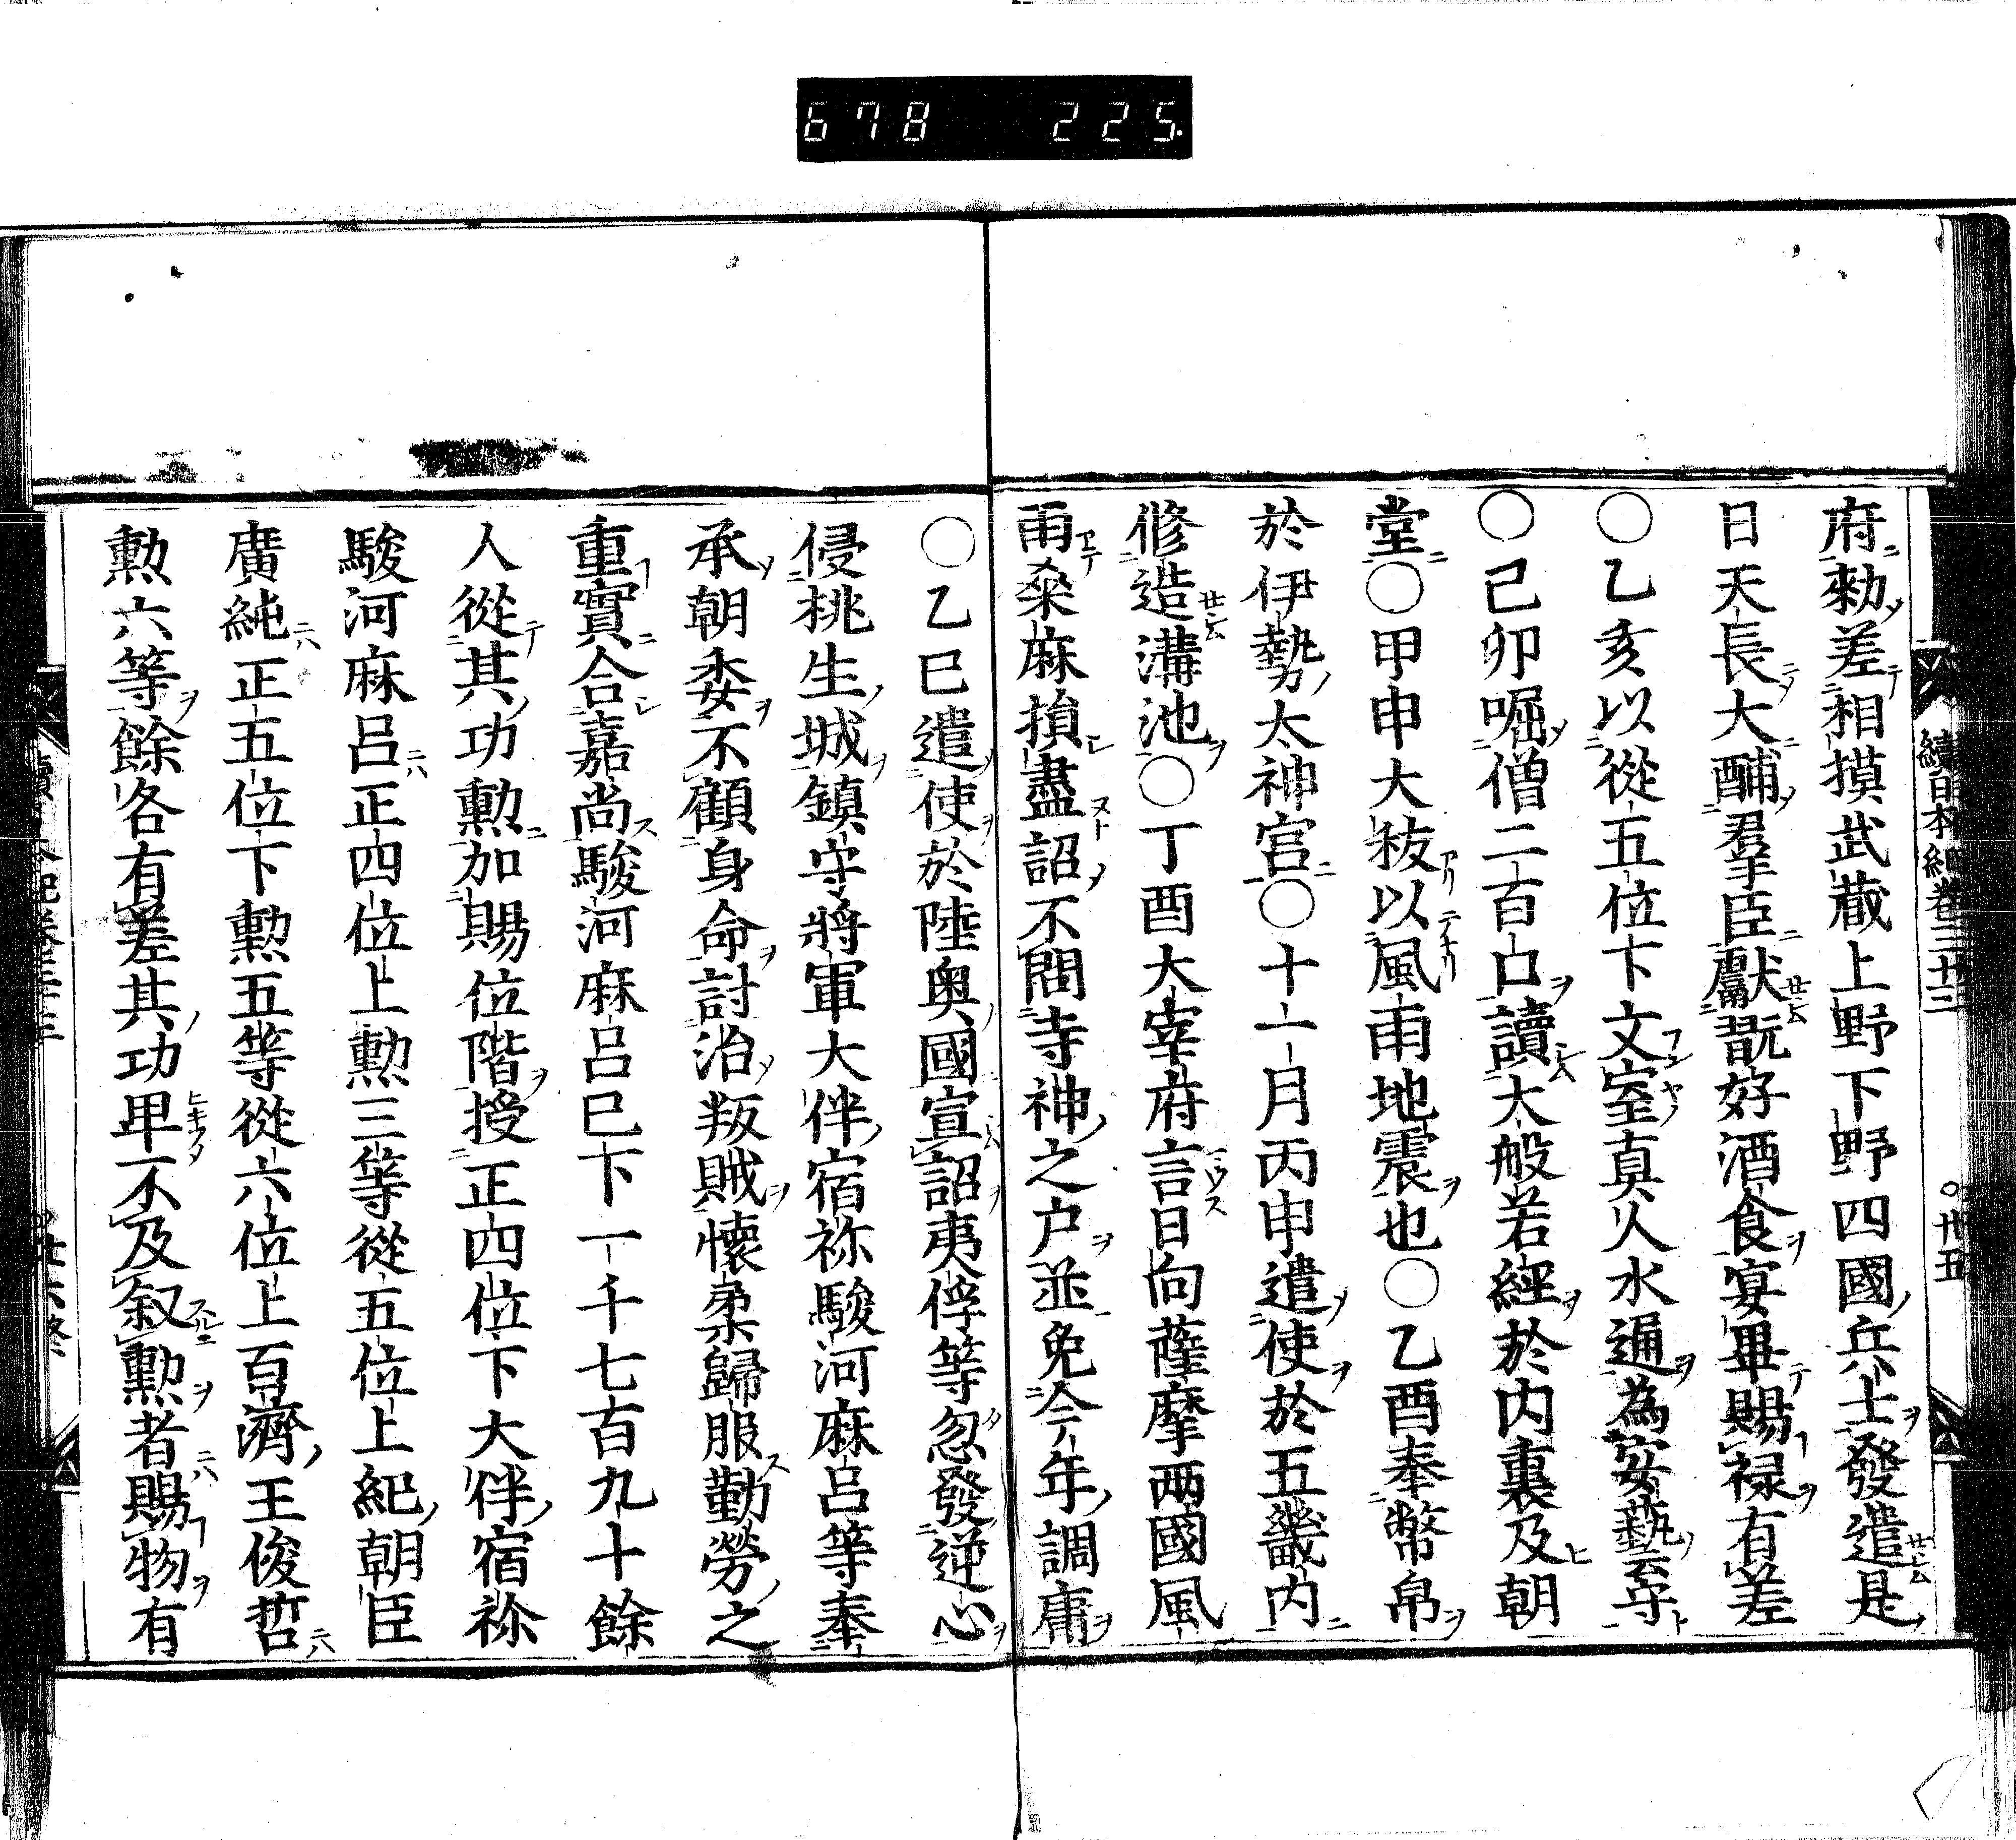 678 225.
續日本紀卷三十三 ○卅五
府勑差相摸武藏上野下野四國兵士發遣是
日天長大酺羣臣獻翫好酒食宴畢賜禄有差
○乙亥以從五位下文室真人水通為安藝守
○己卯啒僧二百口讀大般若經於内裏及朝
堂○甲申大秡以風雨地震也○乙酉奉幣帛
於伊勢太神宮○十一月丙申遣使於五畿内
修造溝池○丁酉大宰府言日向薩摩兩國風
雨桒麻損盡詔不問寺神之户並免今年調庸
○乙巳遣使於陸奥國宣詔夷俘等忽發逆心
侵桃生城鎮守將軍大伴宿祢駿河麻呂等奉
承朝委不顧身命討治叛賊懷柔歸服勤勞之
重實合嘉尚駿河麻呂已下一千七百九十餘
人從其功勲加賜位階授正四位下大伴宿祢
駿河麻呂正四位上勲三等從五位上紀朝臣
廣純正五位下勲五等從六位上百濟王俊哲
勲六等餘各有差其功卑不及叙勲者賜物有